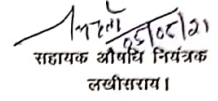 05/05/21
सहायक औषधि नियंत्रक
लखीसराय।